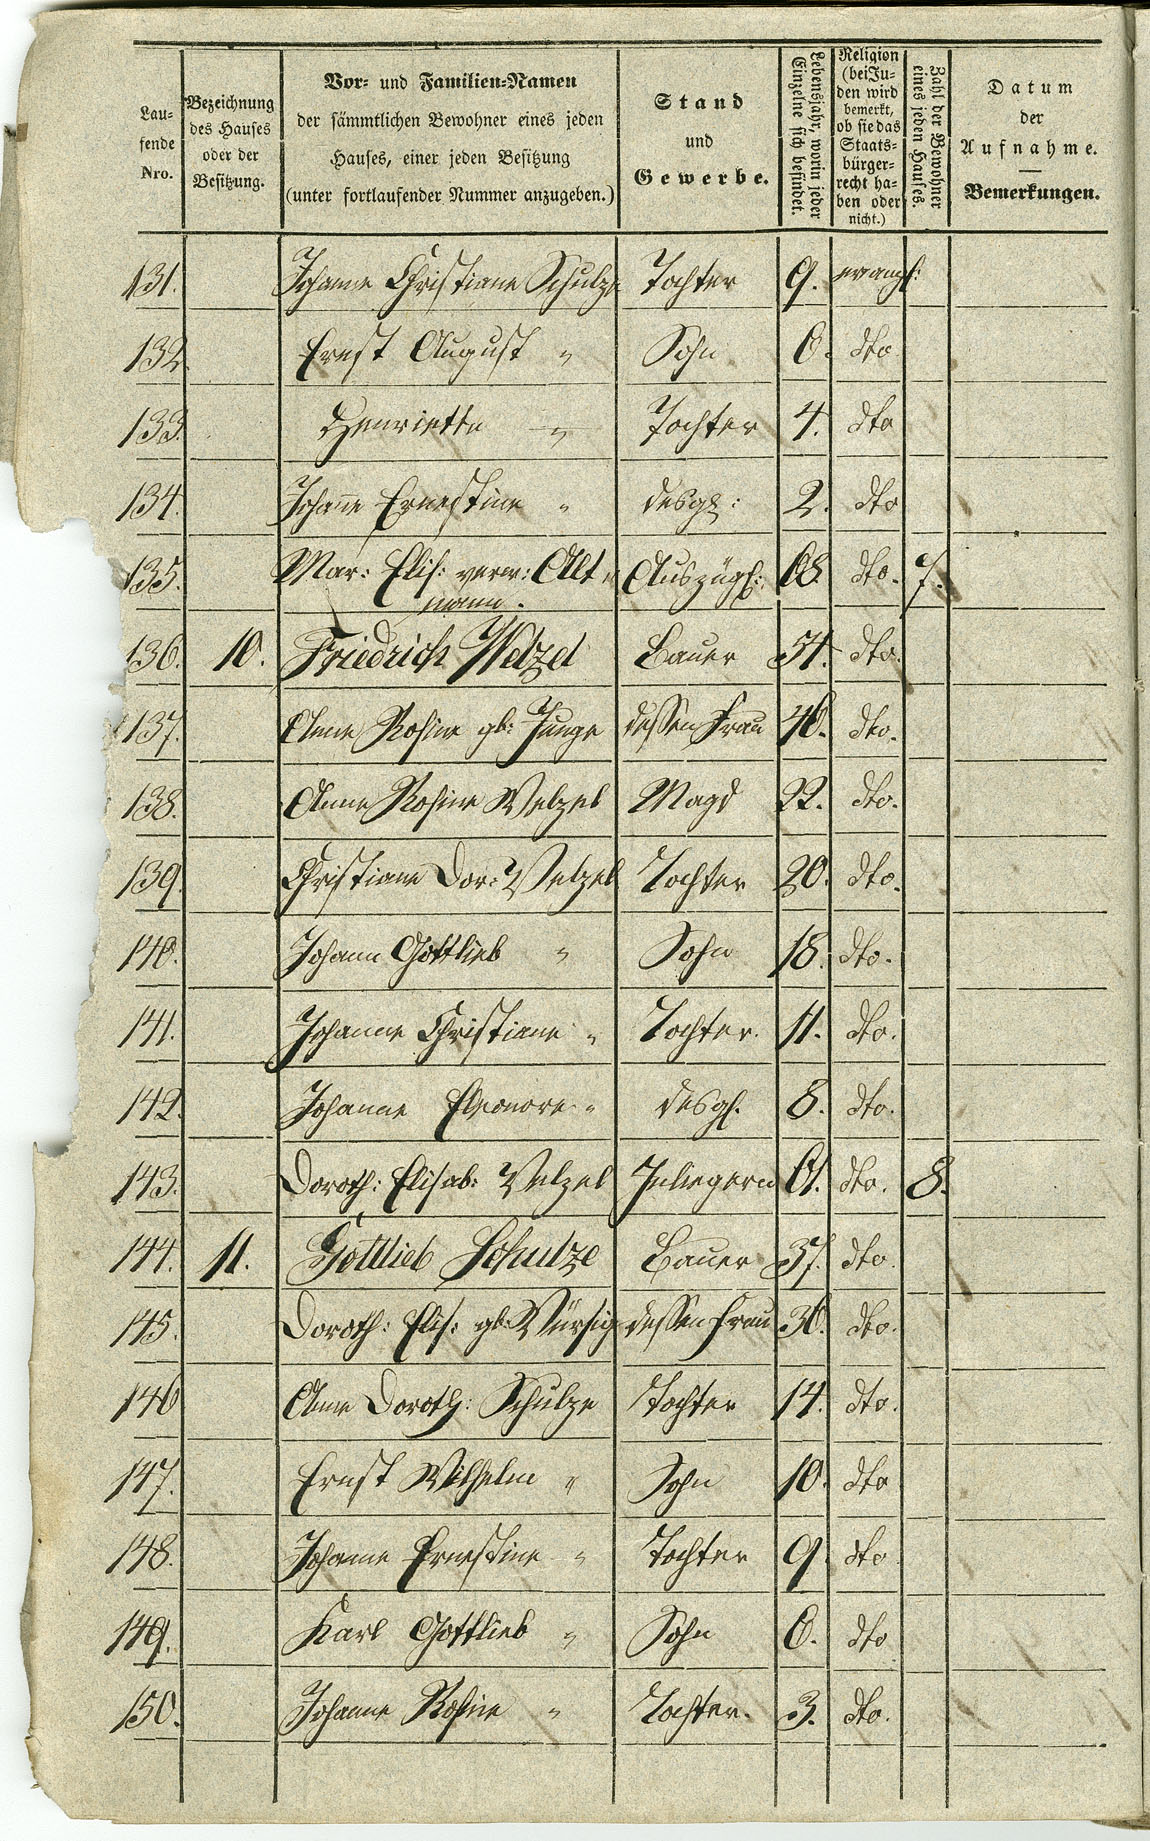 Lau-
fende
Nro.
Bezeichnung
des Hauses
oder der
Besitzung.
Vor- und Familien-Namen
der sämmtlichen Bewohner eines jeden
Hauses, einer jeden Besitzung
(unter fortlaufender Nummer anzugeben.)
Stand
und
Gewerbe.
Lebensjahr, worin jeder
Einzelne sich befindet.
Religion
(bei Ju-
den wird
bemerkt,
ob sie das
Staats-
bürger-
recht ha-
ben oder
nicht.)
Zahl der Bewohner
eines jeden Hauses.
Datum
der
Aufnahme.
Bemerkungen.
131. Johanne Christiane Schulze Tochter 9. evangl:
132. Ernst August " Sohn 6. dto
133. Henriette " Tochter 4. dto
134. Johanne Ernestine " desgl: 2. dto
135. Mar: Elis: verw: Alt- Auszügl: 68. dto. 7.
mann.
136. 10. Friedrich Welzel Bauer 54. dto.
137. Anne Rosine gb: Junge dessen Frau 46. dto.
138. Anne Rosine Welzel Magd 22. dto.
139. Christiane Dor: Welzel Tochter 20. dto.
140. Johann Gottlieb " Sohn 18. dto.
141. Johanne Christiane " Tochter. 11. dto.
142. Johanne Eleonore " desgl. 8. dto.
143. Doroth: Elisab: Welzel Inliegerin 61. dto. 8.
144. 11. Gottlieb Schulze Bauer 37. dto.
145. Doroth: Elis: gb: Würsig dessen Frau 36. dto.
146 Anne Doroth: Schulze Tochter 14. dto.
147. Ernst Wilhelm " Sohn 10. dto
148. Johanne Ernestine " Tochter 9. dto.
149. Karl Gottlieb " Sohn 6. dto
150. Johanne Rosine " Tochter. 3. dto.